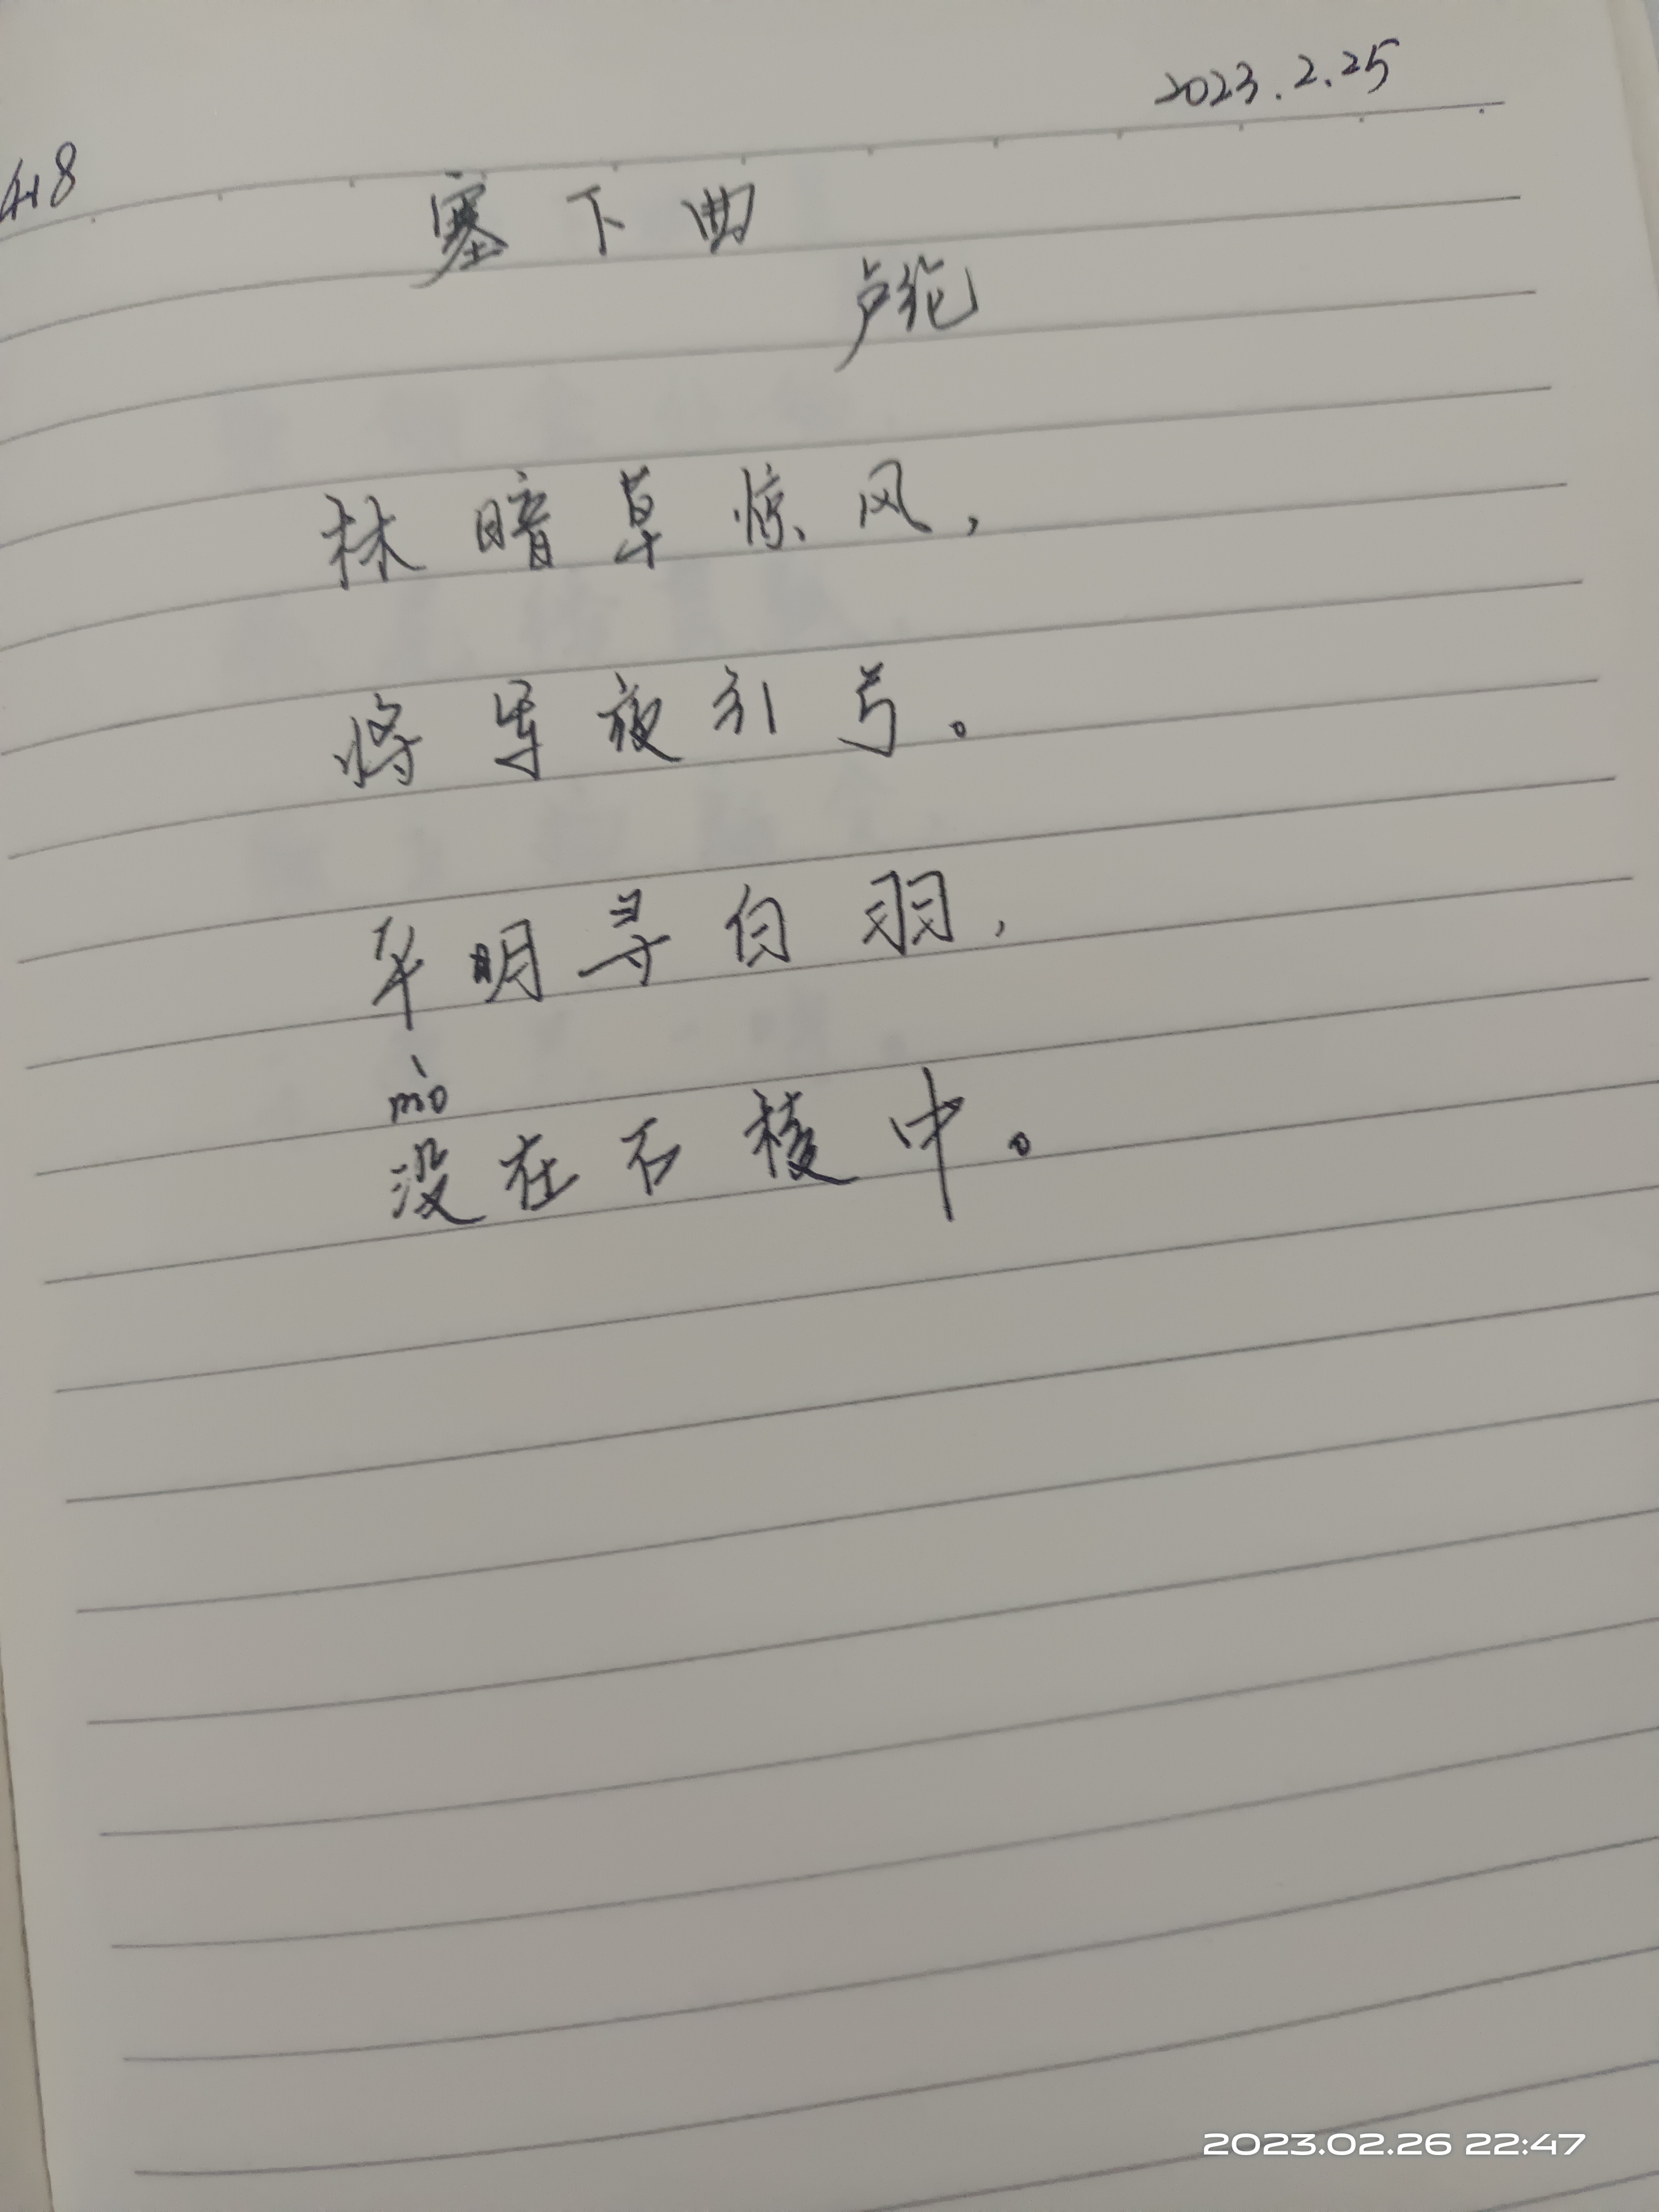 2023.2.25
48
塞下曲
卢纶
林暗草惊风，
将军夜引弓。
平明寻白羽，
mò
没在石棱中。
2023.02.26 22:47